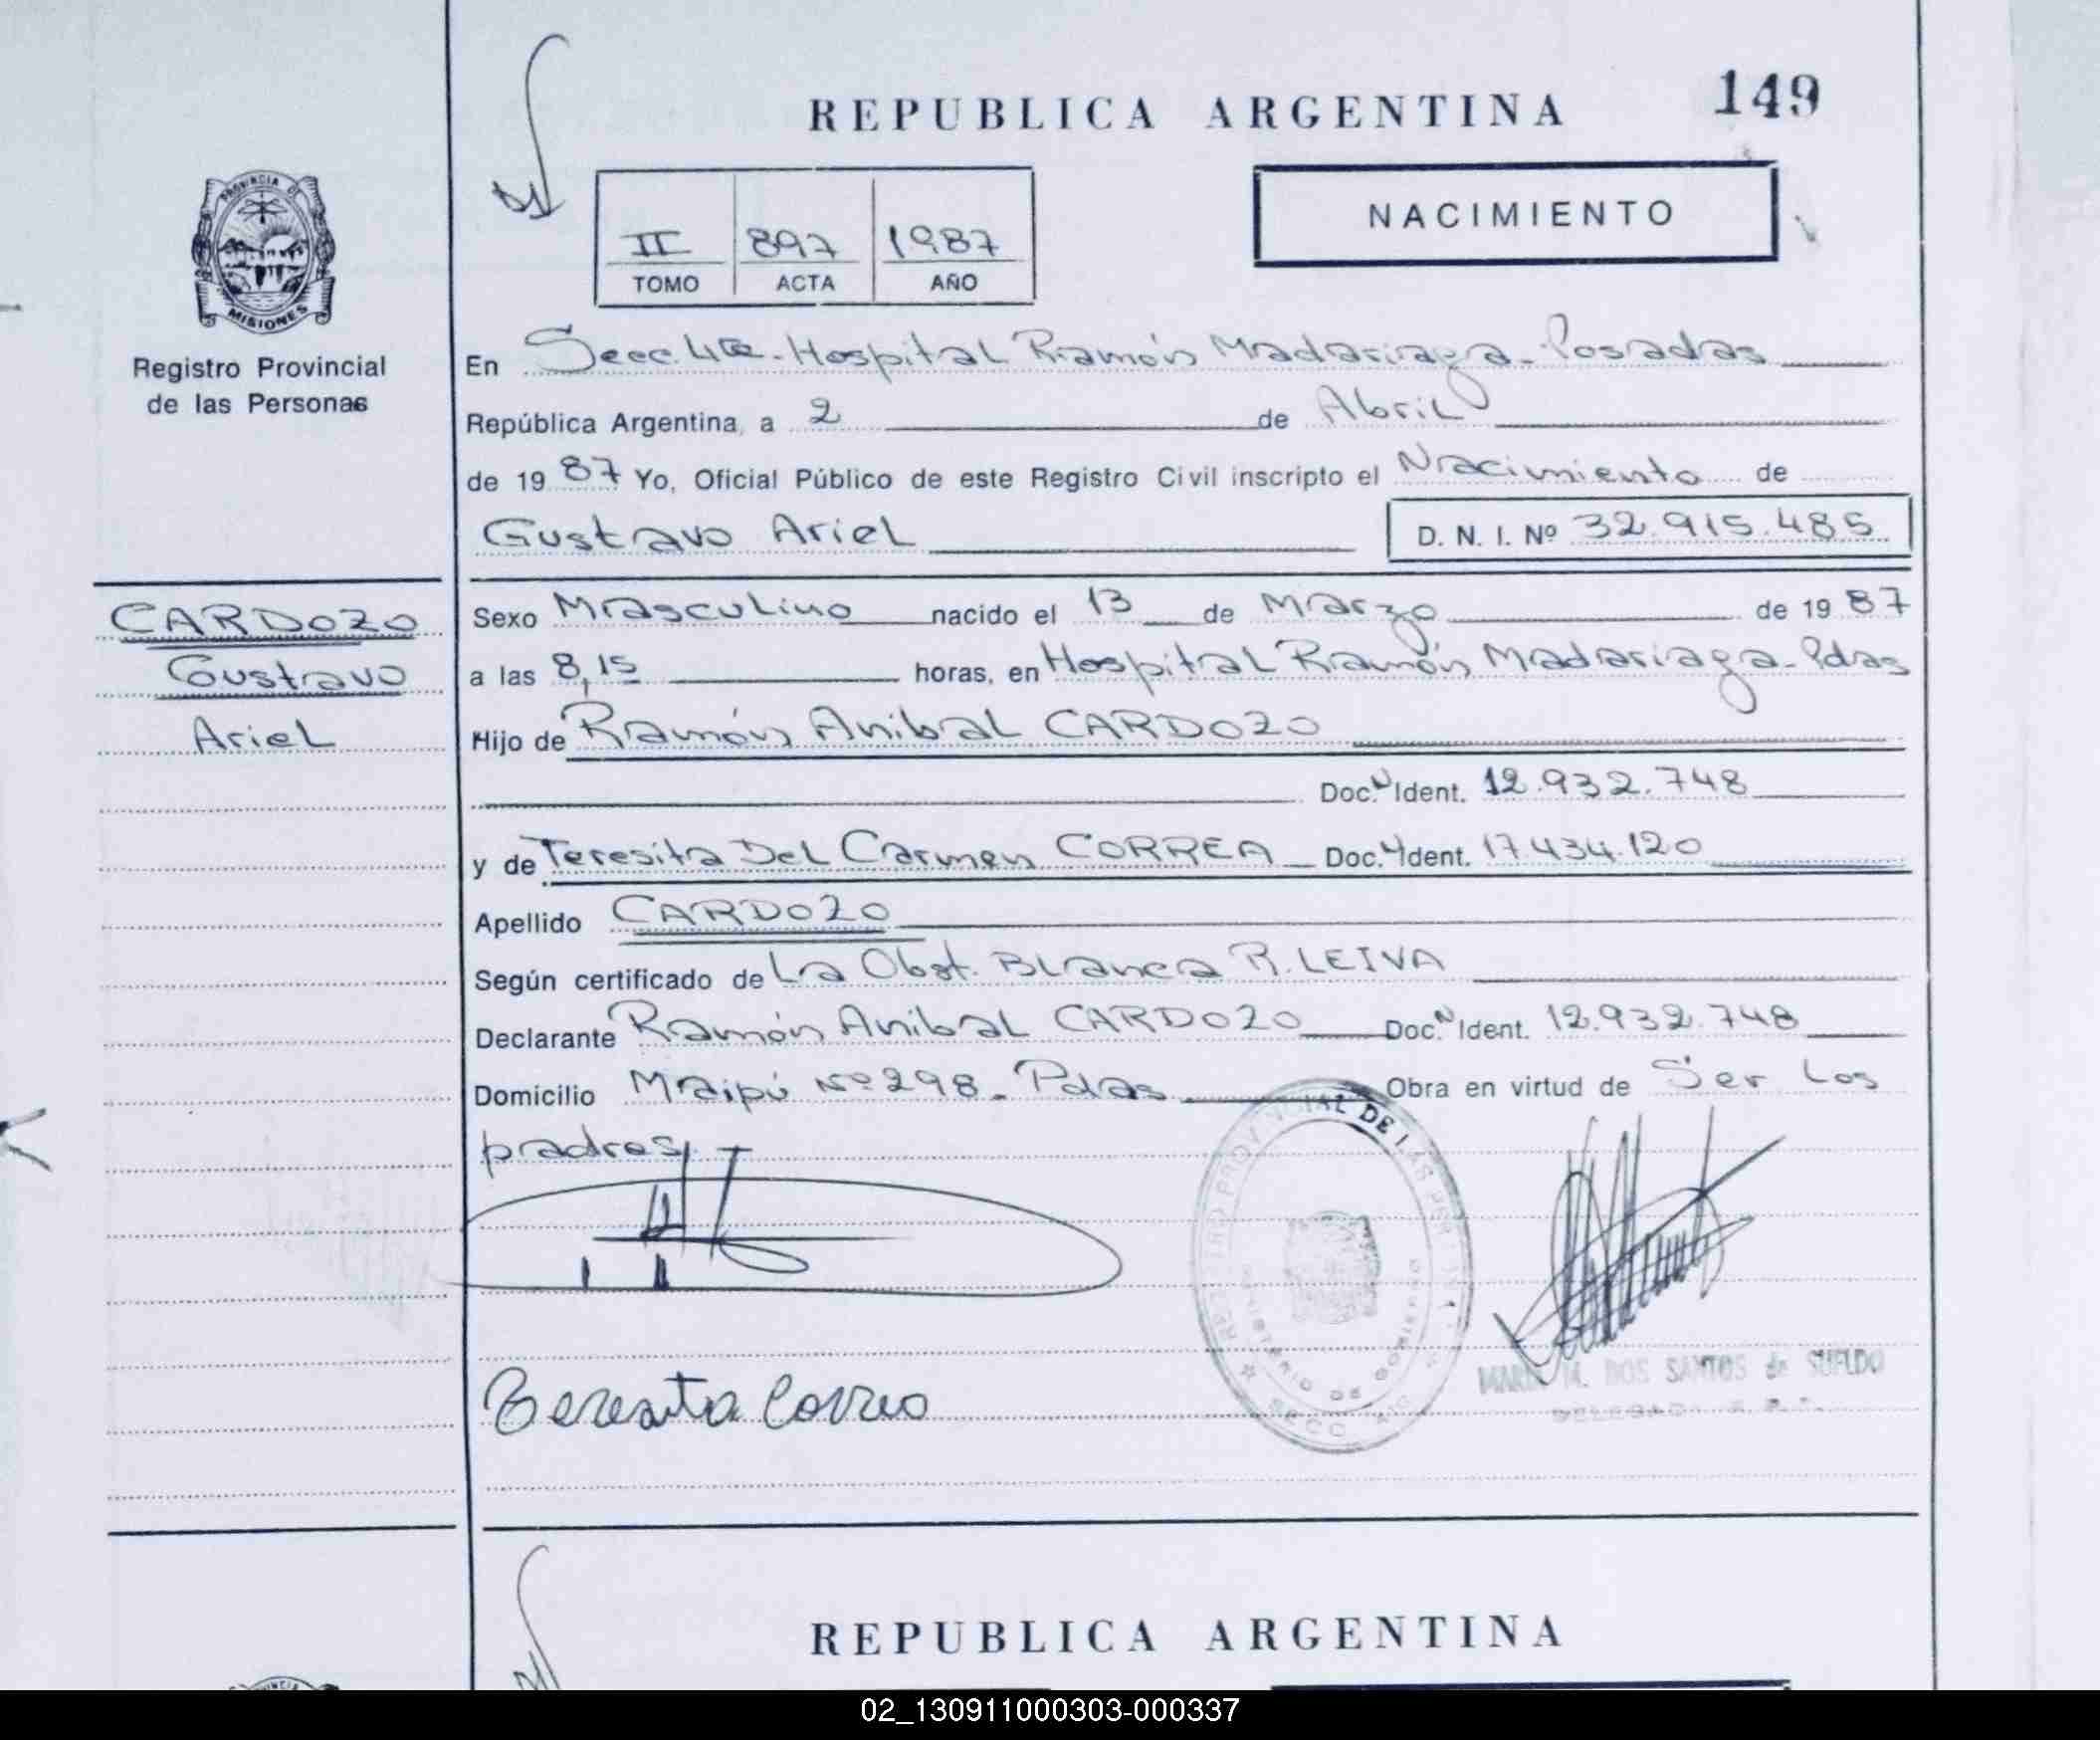 REPUBLICA ARGENTINA
149
NACIMIENTO
II 897 1987
TOMO ACTA AÑO
PROVINCIA DE
MISIONES
Registro Provincial
de las Personas
En Secc. 4ta. Hospital Ramón Madariaga - Posadas
República Argentina, a 2 de Abril
de 1987 Yo, Oficial Público de este Registro Civil inscripto el Nacimiento de
Gustavo Ariel D. N. I. Nº 32.915.485
CARDOZO
Gustavo
Ariel
Sexo Masculino nacido el 13 de Marzo de 1987
a las 8,15 horas, en Hospital Ramón Madariaga - Pdas
Hijo de Ramón Anibal CARDOZO
Doc. N Ident. 12.932.748
y de Teresita Del Carmen CORREA Doc. Ident. 17.434.120
Apellido CARDOZO
Según certificado de La Obst. Blanca R. LEIVA
Declarante Ramón Anibal CARDOZO Doc. N Ident. 12.932.748
Domicilio Maipú Nº 298 - Pdas Obra en virtud de Ser Los
padres
REGISTRO PROVINCIAL DE LAS PER
MINISTERIO DE GOBIERNO
SECC
MARIA M. DOS SANTOS de SUELDO
Teresita Correa
REPUBLICA ARGENTINA
02_130911000303-000337